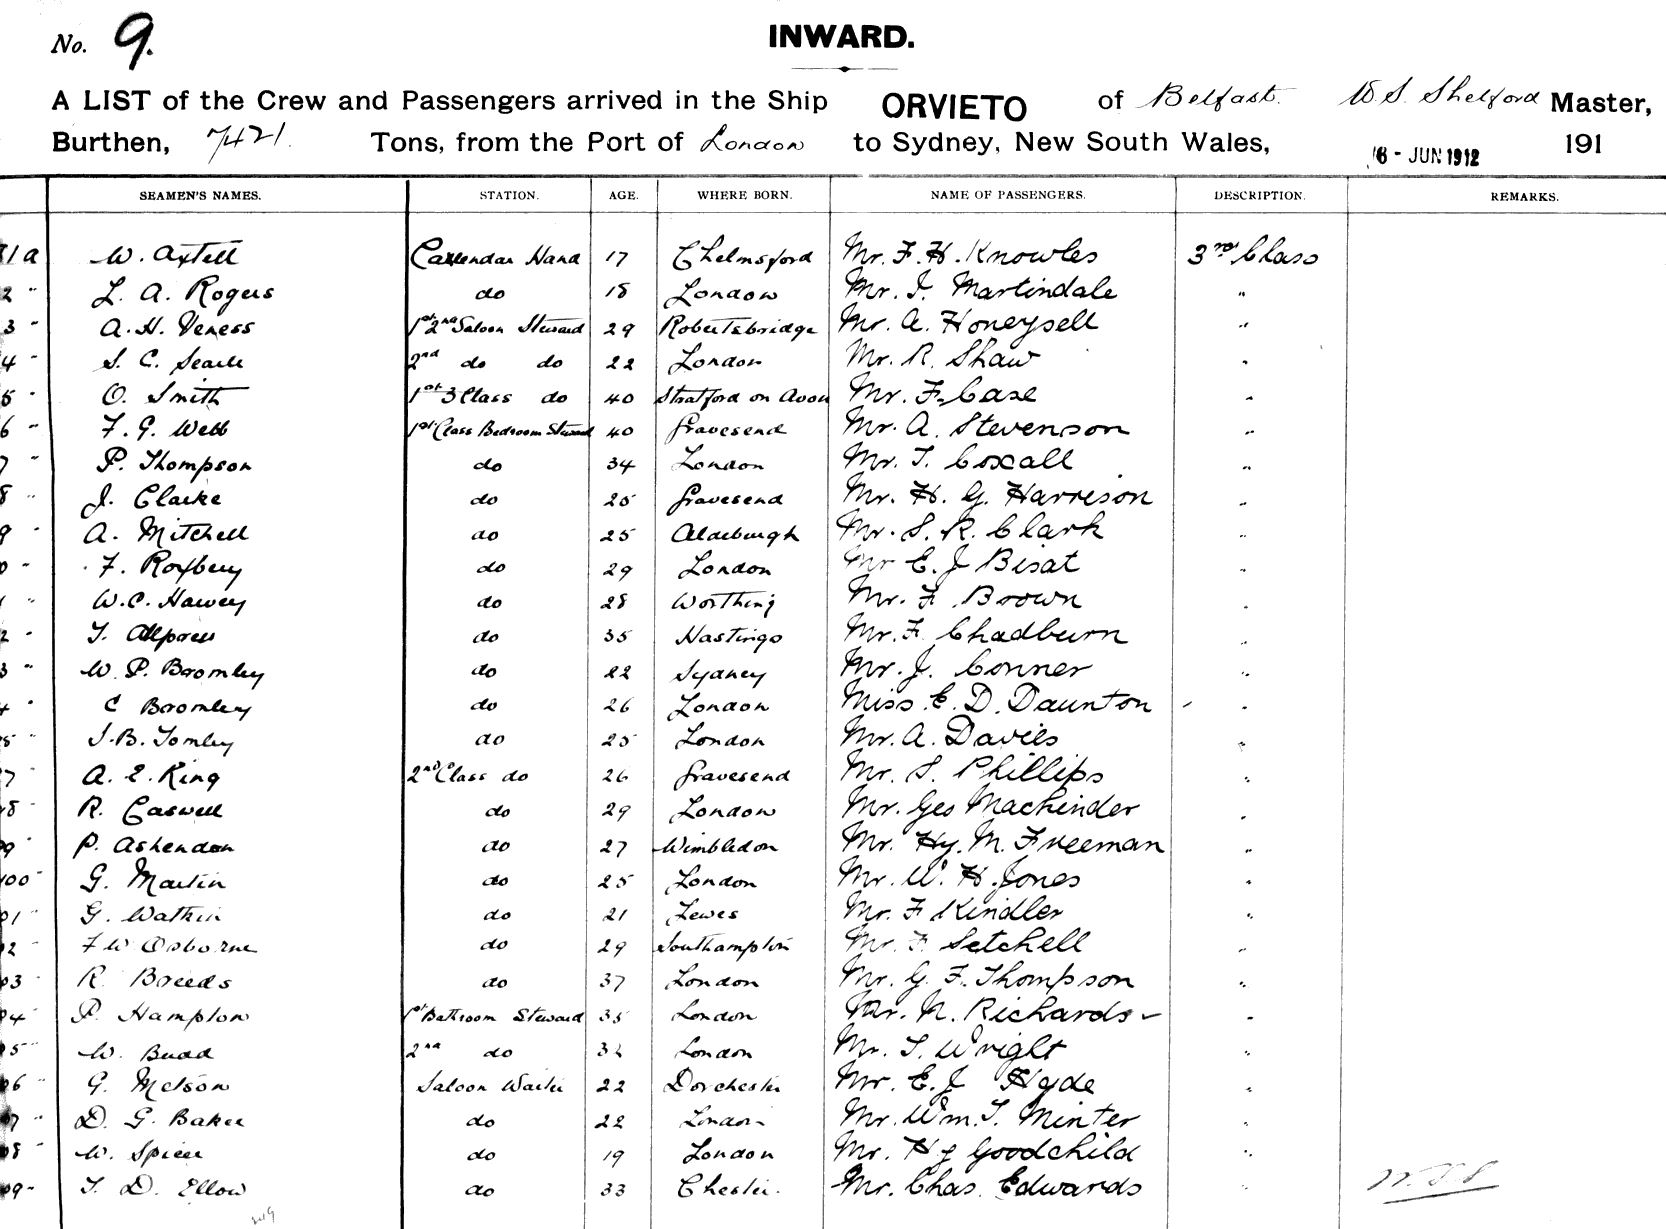 No. 9.
INWARD.
A LIST of the Crew and Passengers arrived in the Ship ORVIETO of Belfast. W S. Shelford Master,
Burthen, 7421. Tons, from the Port of London to Sydney, New South Wales, 6 - JUN 1912 191
SEAMEN'S NAMES. STATION. AGE. WHERE BORN. NAME OF PASSENGERS. DESCRIPTION. REMARKS.
W. Axtell 17 Chelmsford Mr. F. H. Knowles 3rd Class
2 " L. A. Rogers do 18 London Mr. I. Martindale "
3 " A. H. Veness 1st 2nd Saloon Steward 29 Robertsbridge Mr. A. Honeysell "
4 " S. C. Searle 2nd do do 22 London Mr. R. Shaw "
5 " O. Smith 1st 3 Class do 40 Stratford on Avon Mr. F. Case "
6 " F. G. Webb 1st Class Bedroom Steward 40 Gravesend Mr. A. Stevenson "
7 " P. Thompson do 34 London Mr. T. Coxall "
8 " J. Clarke do 25 Gravesend Mr. H. G. Harrison "
9 " A. Mitchell do 25 Aldeburgh Mr. S. R. Clark "
0 " F. Roxbery do 29 London Mr E. J Bisat "
1 " W. C. Harvey do 28 Worthing Mr. F Brown "
2 " T. Allpress do 35 Hastings Mr. F. Chadburn "
3 " W. P. Bromley do 22 Sydney Mr. J. Conner "
4 " C Bromley do 26 London Miss E. D. Daunton "
5 " J. B. Tomley do 25 London Mr. A. Davies "
7 " A. E. King 2nd Class do 26 Gravesend Mr. S. Phillips "
98 " R. Caswell do 29 London Mr. Geo Mackinder "
99 " P. Ashendon do 27 Wimbledon Mr. Hy. M. Freeman "
100 " G. Martin do 25 London Mr. W. H. Jones "
01 " G. Watkin do 21 Lewes Mr. F Kindler "
02 " F W Osborne do 29 Southampton Mr. F. Setchell "
03 " R. Breeds do 37 London Mr. G. F. Thompson "
04 " P. Hampton 1st Bathroom Steward 35 London Mr. N. Richards "
05 " W. Budd 2nd do 32 London Mr. T. Wright "
06 " G. Melson Saloon Waiter 22 Dorchester Mr. E. J Hyde "
07 " D. G. Baker do 22 London Mr. Wm. T. Minter "
08 " W. Spicer do 19 London Mr. Hy Goodchild "
09 " T. D. Ellow do 33 Chester. Mr. Chas. Edwards "